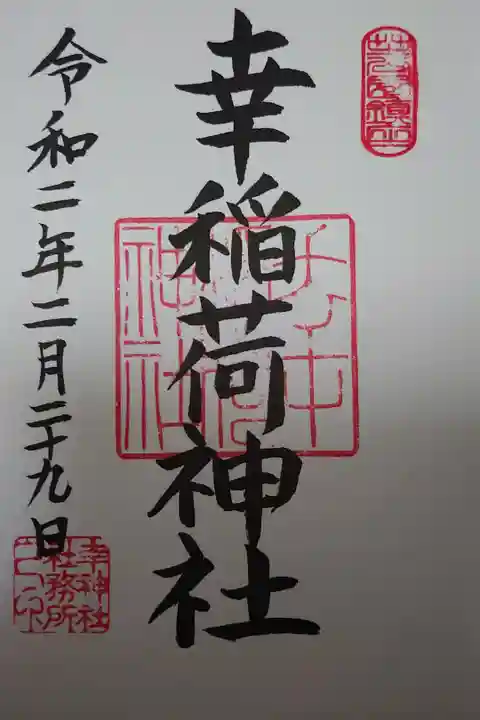 幸稲荷神社
令和二年二月二十九日
幸神社
社務所
之印